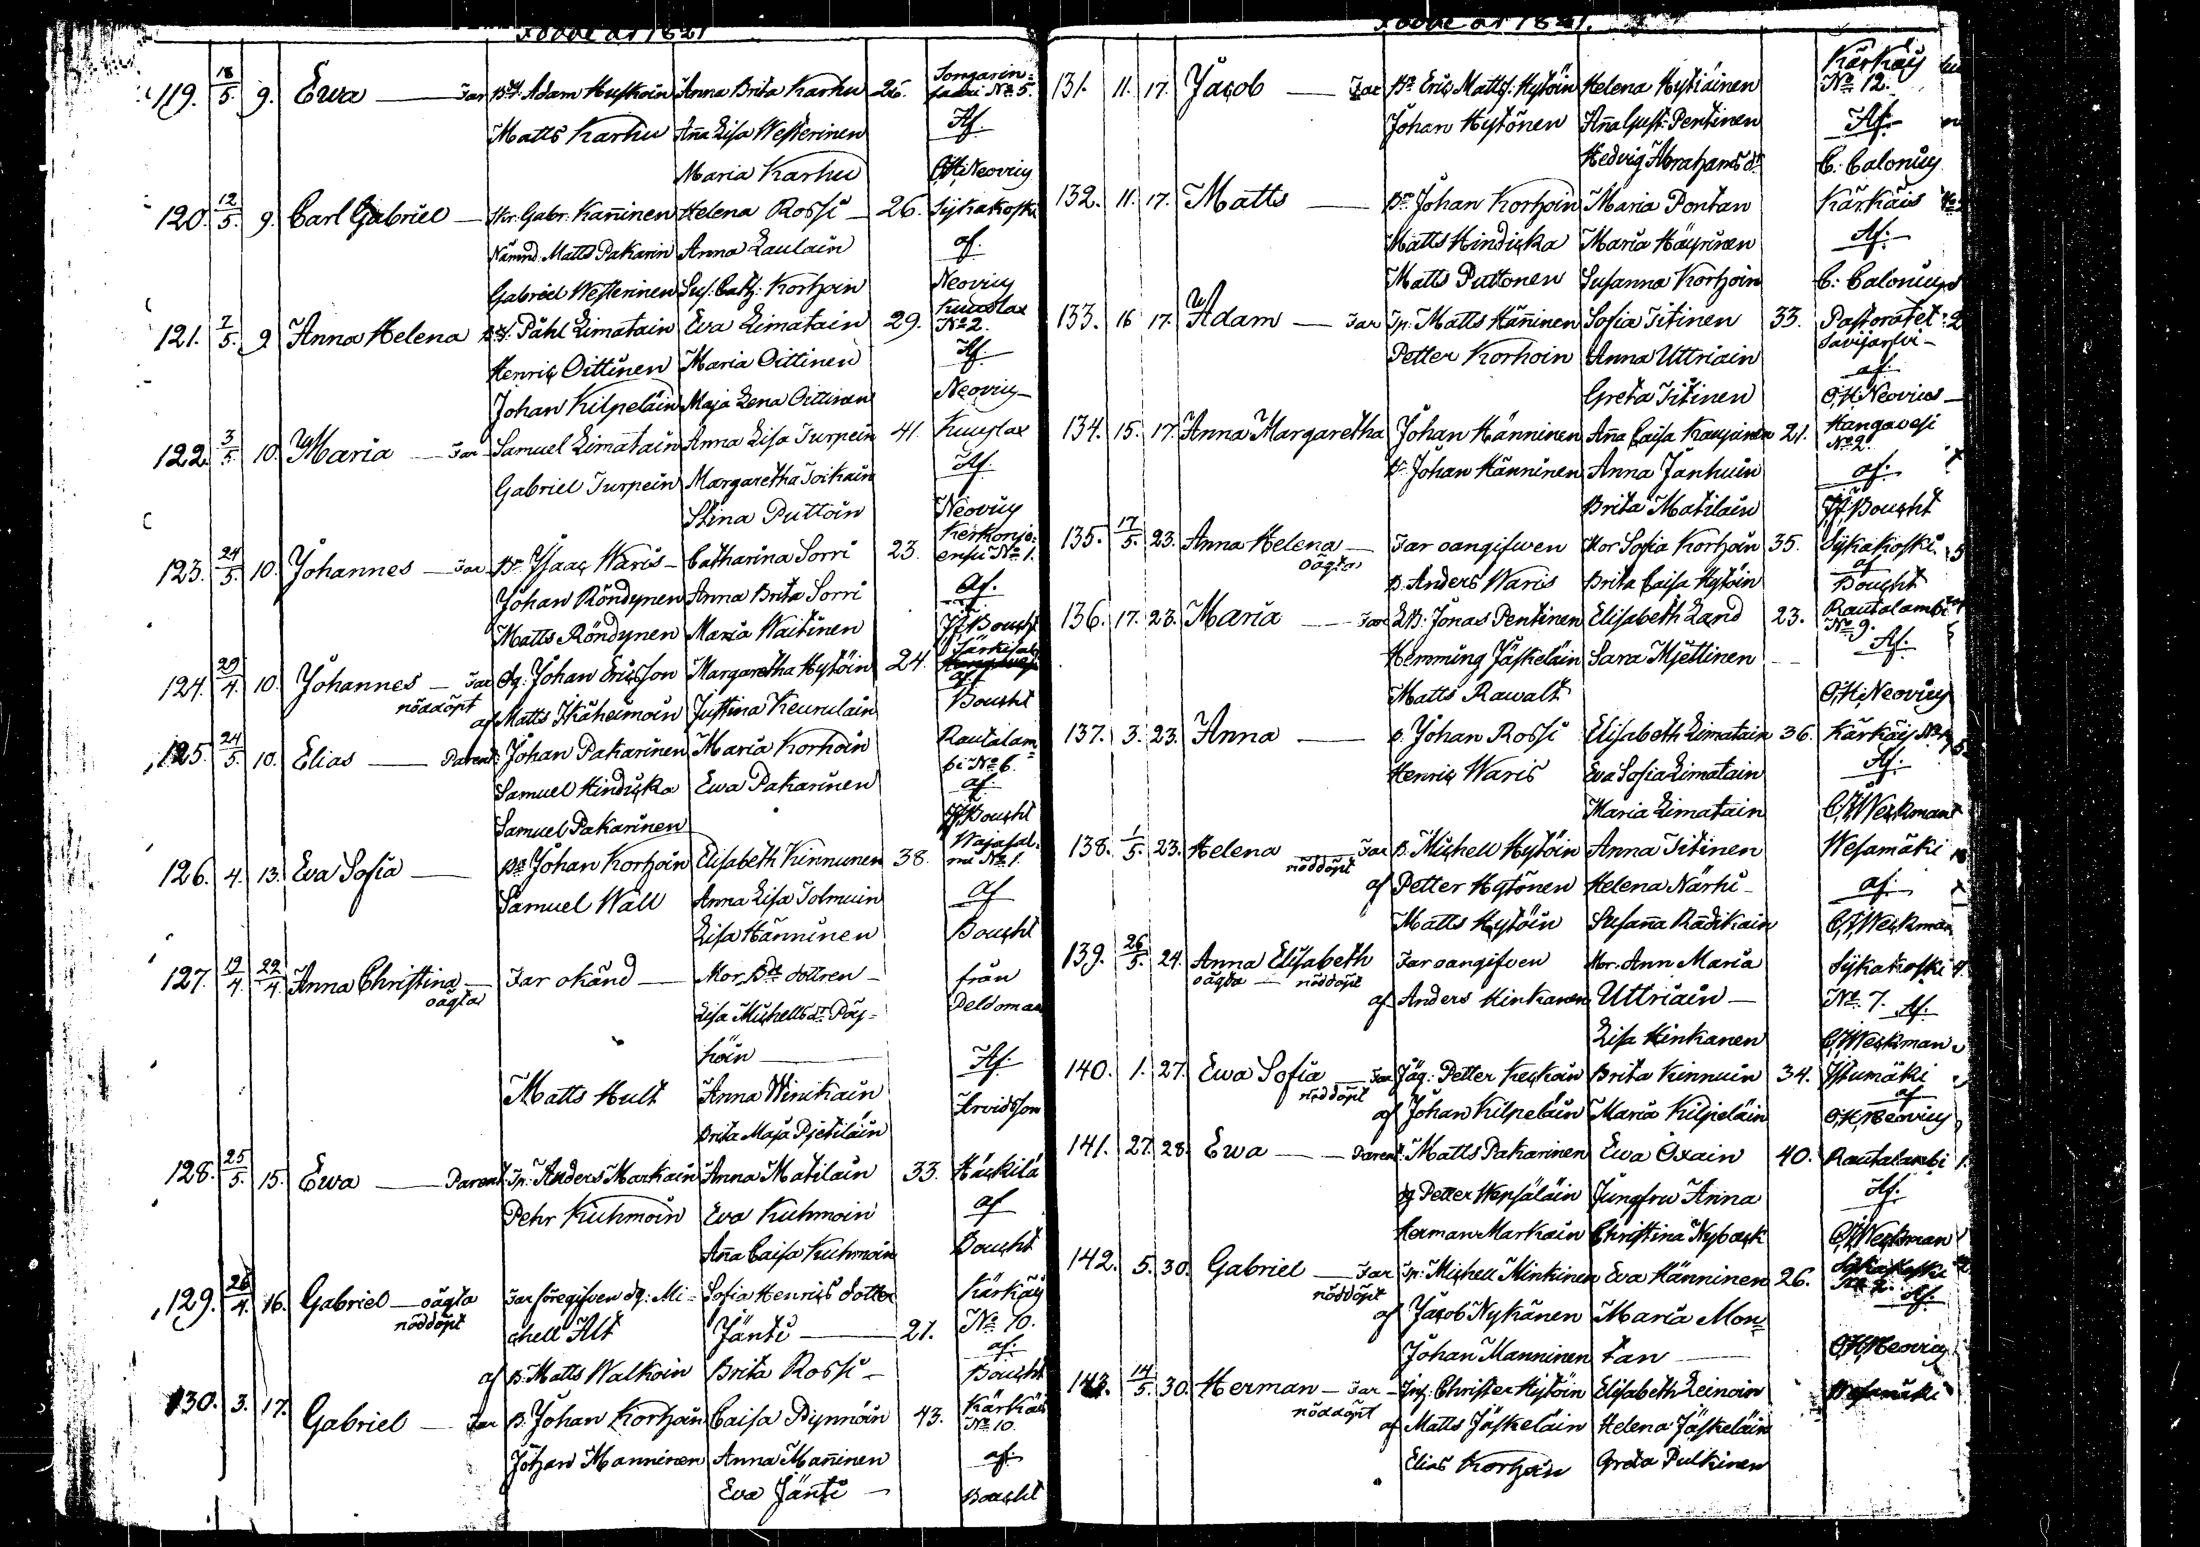 Födde år 1821
119. 18/5. 9. Ewa — Far Bd. Adam Huskoin Anna Brita Karhu 26. Songarin=
saari No 5.
Matts Karhu Aña Lisa Westerinen Af
Maria Karhu O,H,Neovius
120. 12/5. 9. Carl Gabriel — Skr. Gabr. Kañinen Helena Rossi — 26. Sijkakoski
Nämnd. Matts Pakarin Anna Laulain af.
Gabriel Westerinen Sus. Cath. Korhoin Neovius
121. 7/5. 9. Anna Helena Påhl Limatain Eva Limatain 29. Kuuslax
No 2.
Henric Oittinen Maria Oittinen Af.
Johan Kilpeläin Maja Lena Oittinen Neovius
122. 3/5. 10. Maria — Far Samuel Limatain Anna Lisa Turpein 41. Kuuslax
Gabriel Turpein Margaretha Toikain Af.
Stina Puttoin Neovius
123. 24/5. 10. Johannes — Far Bn Isaac Waris — Catharina Sorri 23. Kerkonjo=
ensu No 1.
Johan Röndynen Anna Brita Sorri af.
Matts Röndynen Maria Waitinen J,F,Boucht
124. 29/4. 10. Johannes — Far dg. Johan Ericsson Margaretha Hytöin 24. Särkisalo
nöddöpt af Matts Ikäheimoin Justina Keurulain af. Boucht
125. 24/5. 10. Elias — Parent. Johan Pakarinen Maria Korhoin Rautalam=
bi No 6.
Samuel Hindicka Ewa Pakarinen af
Samuel Pakarinen J,F,Boucht
126. 4. 13. Eva Sofia — Bn Johan Korhoin Elisabeth Kinnunen 38. Wajasal=
mi No 1.
Samuel Wall Anna Lisa Tolmuin af
Lisa Hänninen Boucht
127. 12/4. 22/4. Anna Christina — Far okänd — Mor Bde dottren — från
oägta Lisa Michellsdr Pöy= Peldomaa
höin — Af.
Matts Hult Anna Winikain Arvidsson
Brita Maja Pjetiläin
128. 25/5. 15. Ewa — Parent. Tp. Anders Markain Anna Matilain 33. Häckilä
Pehr Kuhmoin Eva Kuhmoin af
Aña Caisa Kuhmoin Boucht
129. 26/4. 16. Gabriel — oägta Far föregifven dg: Mi= Sofia Henrics dotter Kärkäis
nöddöpt chell Alt Jänti — 21. No 10.
af.
af B. Matts Walkoin Brita Rossi — Boucht
130. 3. 17. Gabriel — Far B. Johan Korhoin Caisa Pynnöin 43. Kärkäis
No 10.
Johan Manninen Anna Mañinen af.
Eva Jänti — Boucht
Födde år 1821.
131. 11. 17. Jacob — Far Bn Eric Matts. Hytöin Helena Hytiäinen Kärkäis
No 12.
Johan Hytönen Aña Gust. Pentinen Af.
Hedvig Abrahams dr C. Calonius
132. 11. 17. Matts — Bn Johan Korhoin Maria Pontan Kärkäis
Matts Hindicka Maria Häyrinen Af.
Matts Puttonen Susanna Korhoin C. Calonius
133. 16 17. Adam — Far Tp. Matts Häñinen Sofia Titinen 33. Pastoratet
Savijärfvi —
Petter Korhoin Anna Uttriain af.
Greta Titinen O,H,Neovius —
134. 15. 17. Anna Margaretha Johan Hänninen Aña Caisa Kaupinen 21. Hangavesi
No 2.
Bn Johan Hänninen Anna Janhuin af.
Brita Matilain J,F,Boucht
135. 17/5. 23. Anna Helena — Far oangifwen Mor Sofia Korhoin 35. Sijkakoski
oägta B. Anders Waris Brita Caisa Hytöin af Boucht
136. 17. 23. Maria — Far LB. Jonas Pentinen Elisabeth Land 23. Rautalambi
No 9.
Hemming Jäskeläin Sara Mjettinen Af.
Matts Rawalt O,H,Neovius
137. 3. 23. Anna — B. Johan Rossi Elisabeth Limatain 36. Kärkäis No
Henric Waris Eva Sofia Limatain Af.
Maria Limatain C,J,Weckman
138. 1/5. 23. Helena — Far B. Michell Hytöin Anna Titinen Wesamäki
nöddöpt af Petter Hytönen Helena Närhi — af.
Matts Hytöin Susaña Rädikain C,J,Weckman
139. 26/5. 24. Anna Elisabeth Far oangifven Mor. Ann Maria Sijkakoski
oägta — nöddöpt af Anders Hinkanen Uttriain — No 7. Af.
Lisa Hinkanen C,J,Weckman
140. 1. 27. Ewa Sofia — Far Jäg: Petter Keckoin Brita Kinnuin 34. Istumäki
nöddöpt af Johan Kilpeläin Maria Kilpeläin af O,H,Neovius
141. 27. 28. Ewa — Parent. Matts Pakarinen Ewa Oxain 40. Rautalambi 1.
dg Petter Wepsäläin Jungfru Anna Af.
Herman Markain Christina Nyback C,J,Weckman
142. 5. 30. Gabriel — Far Tp: Michell Minkinen Eva Hänninen 26. Sijkakoski
nöddöpt af Jacob Nykänen Maria Mon= Af.
Johan Manninen tan — O,H,Neovius
143. 14/5. 30. Herman — Far — Inh. Christer Hytöin Elisabeth Leinoin Wesamäki
nöddöpt af Matts Jäskeläin Helena Jäskeläin
Elias Korhoin Greta Pulkinen